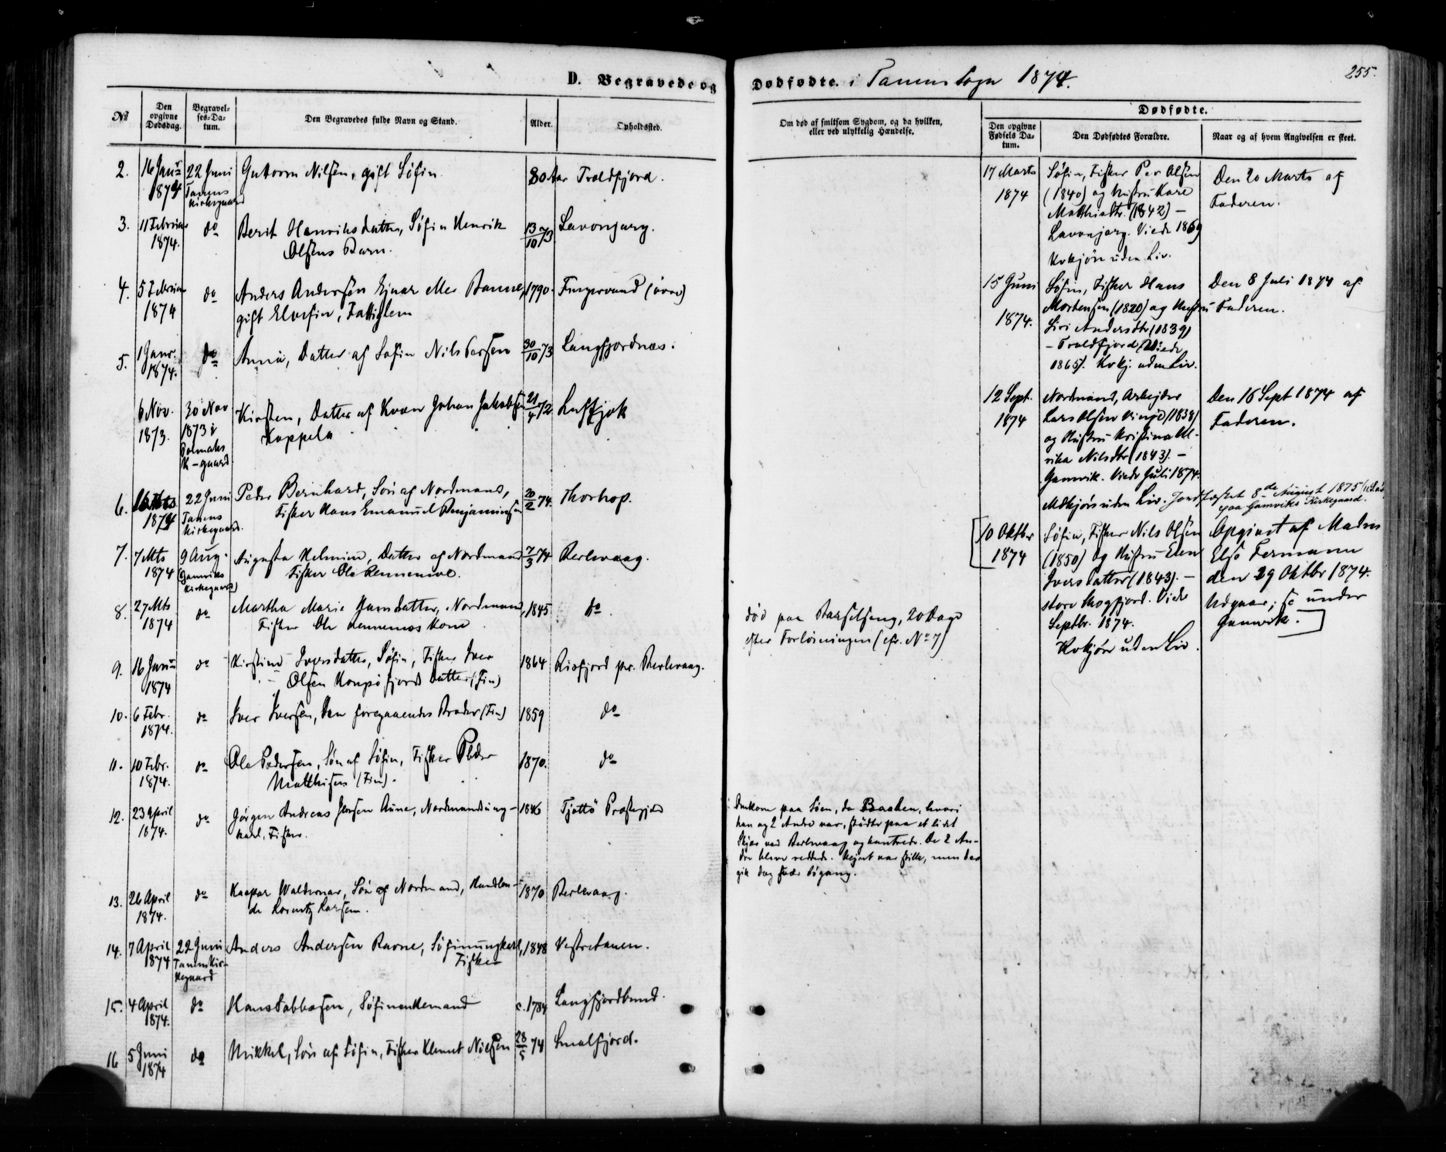 D. Begravede og
Dødfødte. i Tanens Sogn 1874.
255.
No
Den opgivne Dødsdag.
Begravelses-Datum.
Den Begravedes fulde Navn og Stand.
Alder.
Opholdssted.
2. 16 Janr 1874 22 Juni Tanens Kirkegaard Guttorm Nilsen, gift Søfin 80 Aar Troldfjord.
3. 11 Februar 1874. do Berit Henriksdatter, Søfin Henrik
Olsens Barn. 13/10 73 Lavonjarg.
4. 5 Februar 1874 do Anders Andersen
gift Elvefin, Fattiglem 1790 (øvre)
5. 1 Janr. 1874. do Anna, Datter af Søfin Nils Larsen 30/10 73 Langfjordnæs.
6 Nov. 1873. 30 Nov 1873 i Polmaks K-gaard Kirsten, Datter af Kvæn Johan
Kappela 21/4 72
6. 1874 22 Juni Tanens Kirkegaard. Peder Bernhard, Søn af Nordmand,
Fisker Hans Emanuel Benjaminsen 20/2 74. Thorhop.
7. 7 Mts 1874 9 Aug. Gamviks Kirkegaard Augusta Helmine, Datter af Nordmand
Fisker Ole 7/3 74 Berlevaag.
8. 27 Mts 1874 do Martha Marie Hansdatter, Nordmand,
Fisker Ole Kone 1845 do
9. 16 Janr 1874 do Kirstine Iversdatter, Søfin, Fisker Iver
Olsen Kongsøfjords Datter (Fin) 1864 Risfjord pr. Berlevaag.
10. 6 Febr. 1874. do Iver Iversen, den foregaaendes Broder (Fin) 1859 do
11. 10 Febr. 1874. do Ole Pedersen, Søn af Søfin, Fisker Peder
Matthisen (Fin). 1870. do
12. 23 April 1874. do Jørgen Andreas Jensen Aune, Nordmand ung-
karl, Fisker. 1846 Tjøttø Præstegjeld
13. 26 April 1874. do Kaspar Waldemar, Søn af Nordmand, Handlen-
de Lorentz Larsen. 1870 Berlevaag.
14. 7 April 1874 22 Juni Tanens Kirkegaard Anders Andersen Ravne, Søfinungkarl,
Fisker 1848 Vestretanen.
15. 4 April 1874. do Hans Jabbasen, Søfinenkemand c. 1784 Langfjordbund.
16 5 Juni 1874 do Mikkel, Søn af Søfin, Fisker Klemet Nielsen 28/5 74 Smalfjord.
Om død af smitsom Sygdom, og da hvilken, eller ved ulykkelig Hændelse.
død paa Barselseng, 20 Dage
efter Forløsningen (cfr. No 7)
Omkom paa Søen, da Baaden, hvori
han og 2 Andre var, stødte paa et lidet
Skjær ved Berlevaag og kantrede. De 2 An-
dre bleve reddede. Vejret var stille, men der
gik dog svær Søgang.
Dødfødte.
Den opgivne Fødsels Datum.
Den Dødfødtes Forældre.
Naar og af hvem Angivelsen er skeet.
17 Marts 1874
Søfin, Fisker Per Olsen
(1840) og Hustru Kare
Matthisdtr. (1842) –
Lavonjarg. Viede 1869
Kvkjøn uden Liv.
Den 20 Marts af
Faderen.
15 Juni 1874.
Søfin, Fisker Hans
Mortensen (1820) og Hustru
Siri Andersdtr (1839)
– Troldfjord, Viede
1865. Kvkj. uden Liv.
Den 8 Juli 1874 af
Faderen.
12 Sept. 1874
Nordmand, Arbejder
Lars Olsen (1838)
og Hustru Kristina Ul-
rika Nilsdtr (1843). –
Gamvik. Viede Juli 1874.
Mdkjøn uden Liv. Jordfæstet 8de August 1875
paa Gamviks Kirkegaard.
Den 16 Sept 1874 af
Faderen.
10 Oktbr 1874
Søfin, Fisker Nils Olsen
(1850) og Hustru Elen
Iversdatter (1843). –
store Skogfjord. Viede
Septbr. 1874.
Kvkjøn uden Liv.
Opgivet af Madm
Else Fermann
den 29 Oktbr 1874.
Udgaar; se under
Gamvik.